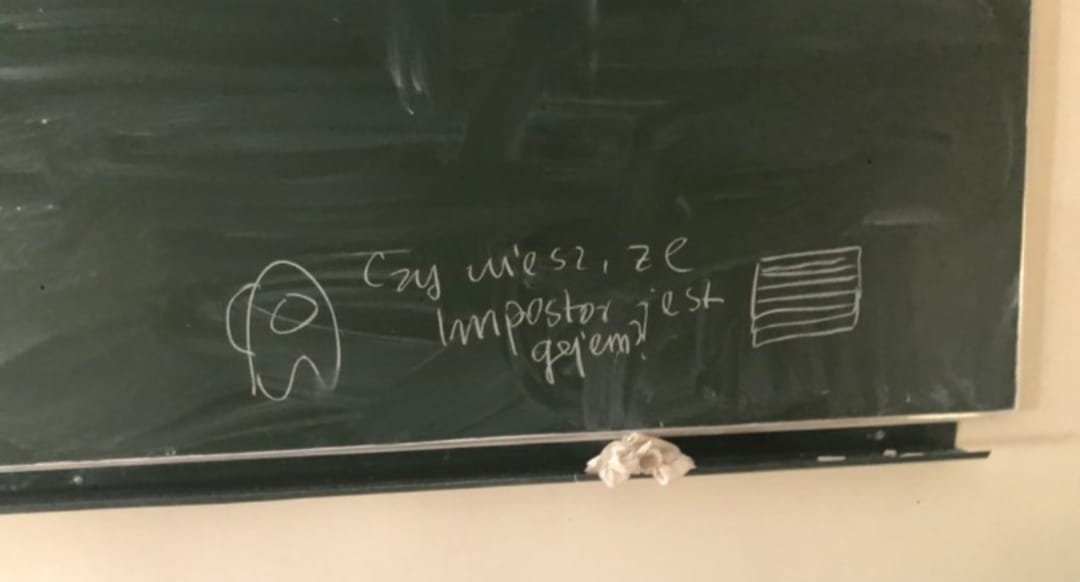 Czy wiesz, że
Impostor jest
gejem?